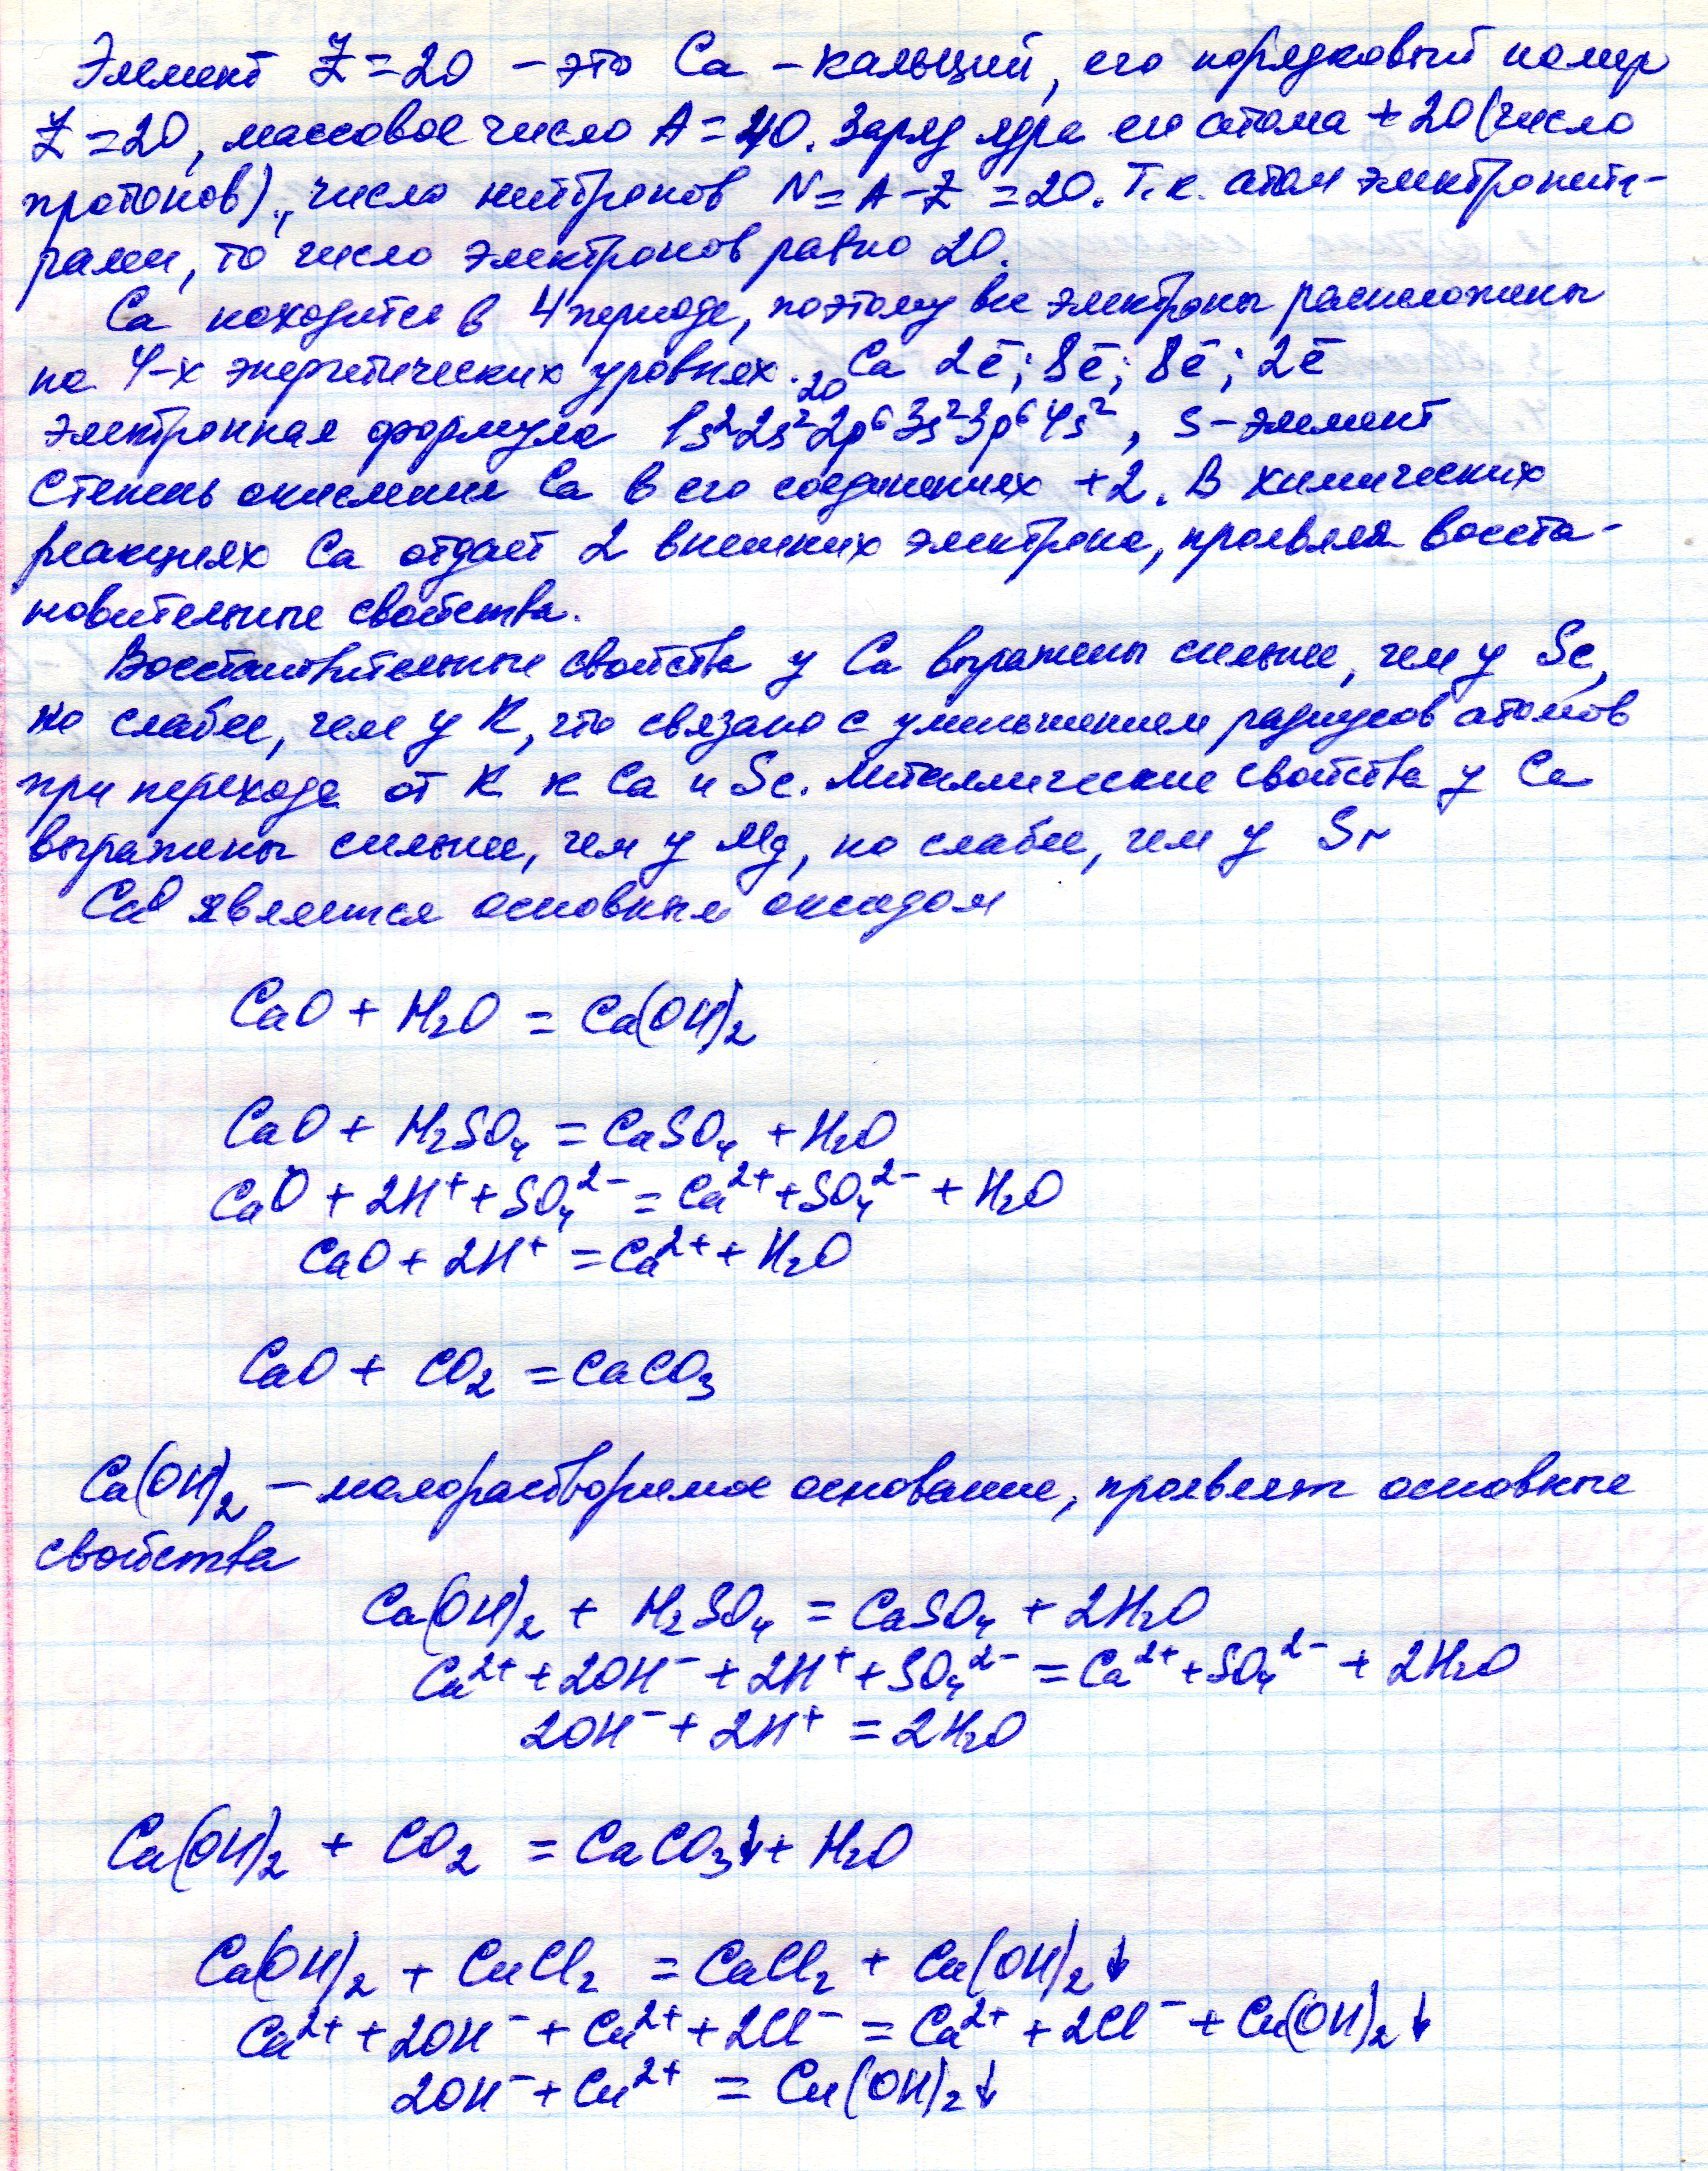 Элемент Z = 20 – это Ca – кальций, его порядковый номер
Z = 20, массовое число A = 40. Заряд ядра его атома + 20 (число
протонов), число нейтронов N = A – Z = 20. Т.к. атом электронейт-
рален, то число электронов равно 20.
Ca находится в 4 периоде, поэтому все электроны расположены
на 4-х энергетических уровнях. ₂₀Ca 2ē; 8ē; 8ē; 2ē
Электронная формула 1s²2s²2p⁶3s²3p⁶4s², s – элемент
Степень окисления Ca в его соединениях +2. В химических
реакциях Ca отдает 2 внешних электрона, проявляя восста-
новительные свойства.
Восстановительные свойства у Ca выражены сильнее, чем у Sc,
но слабее, чем у K, что связано с уменьшением радиусов атомов
при переходе от K к Ca и Sc. Металлические свойства у Ca
выражены сильнее, чем у Mg, но слабее, чем у Sr
CaO является основным оксидом
CaO + H₂O = Ca(OH)₂
CaO + H₂SO₄ = CaSO₄ + H₂O
CaO + 2H⁺ + SO₄²⁻ = Ca²⁺ + SO₄²⁻ + H₂O
CaO + 2H⁺ = Ca²⁺ + H₂O
CaO + CO₂ = CaCO₃
Ca(OH)₂ – малорастворимое основание, проявляет основные
свойства
Ca(OH)₂ + H₂SO₄ = CaSO₄ + 2H₂O
Ca²⁺ + 2OH⁻ + 2H⁺ + SO₄²⁻ = Ca²⁺ + SO₄²⁻ + 2H₂O
2OH⁻ + 2H⁺ = 2H₂O
Ca(OH)₂ + CO₂ = CaCO₃↓ + H₂O
Ca(OH)₂ + CuCl₂ = CaCl₂ + Cu(OH)₂↓
Ca²⁺ + 2OH⁻ + Cu²⁺ + 2Cl⁻ = Ca²⁺ + 2Cl⁻ + Cu(OH)₂↓
2OH⁻ + Cu²⁺ = Cu(OH)₂↓